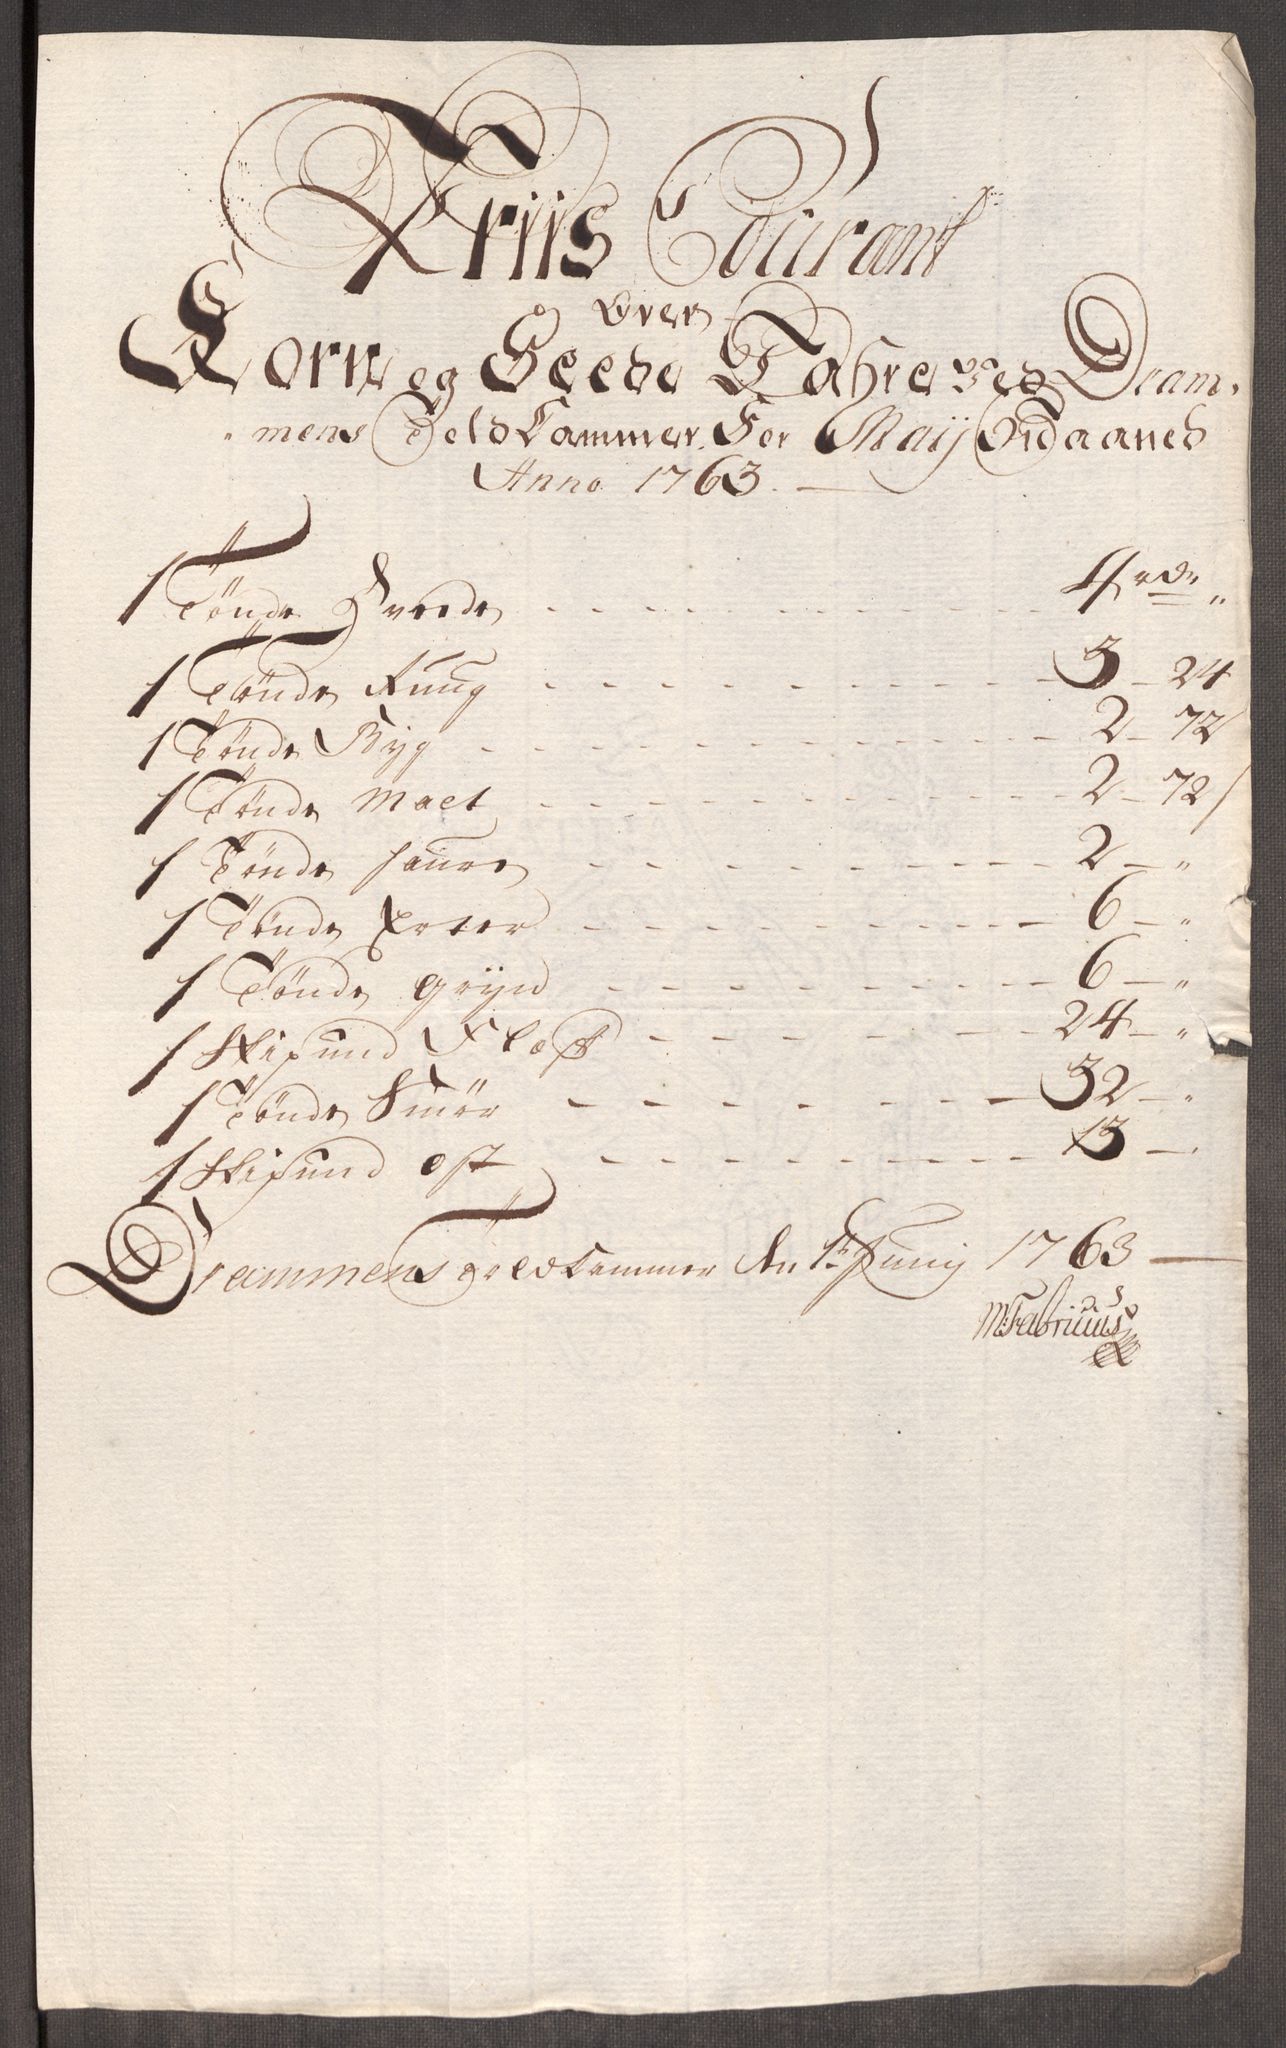 Priis Courant
Over
Korn og Feede Vahre ved Dram-
mens Told Cammer For Maij Maaned
Anno 1763.
1 Tönde Hveede 4 rdr "
1 Tönde Rúúg 3 - 24
1 Tönde Byg 2 - 72
1 Tönde Malt 2 - 72
1 Tönde haúre 2 - "
1 Tönde Erter 6 - "
1 Tönde gryn 6 - "
1 Skipúnd Flæsk 24 - "
1 Tönde Smör 32 - "
1 Skipúnd Ost 13 - "
Drammens Toldkammer den 1te Junij 1763
M: Fabricius